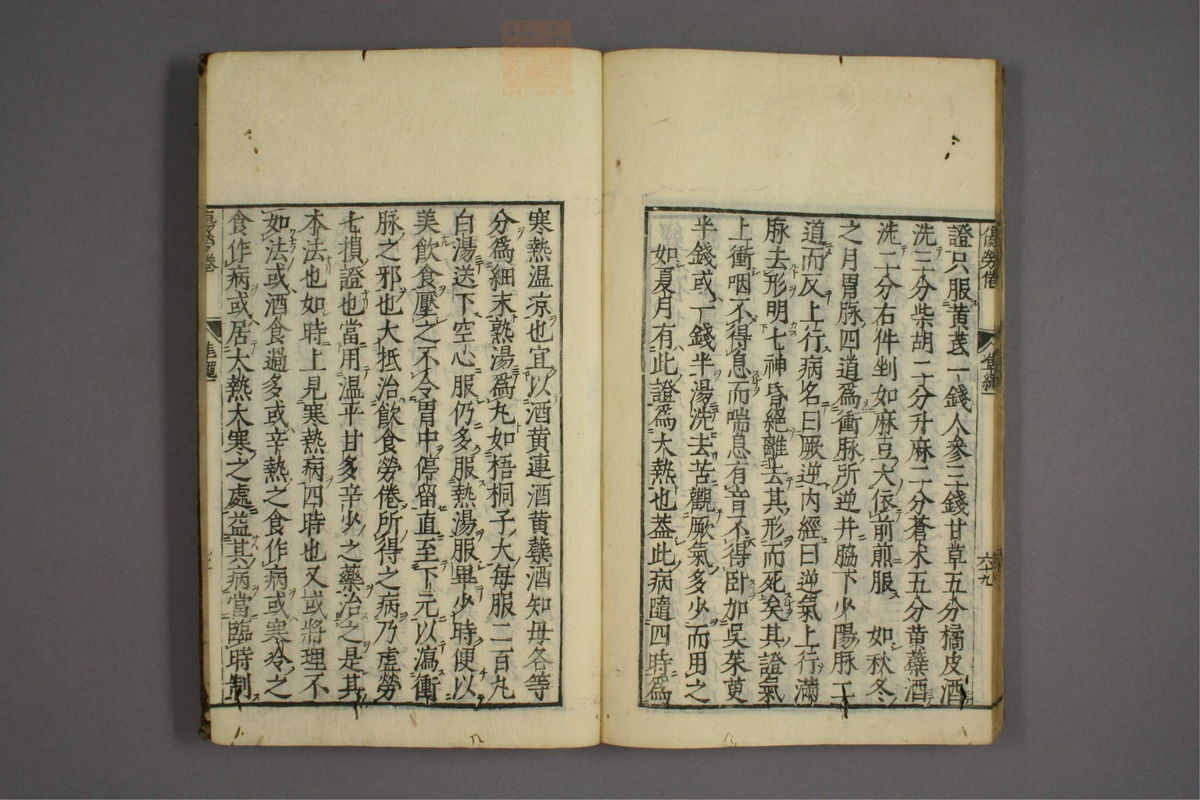 證只服黄芪一錢人參三錢甘草五分橘皮酒
洗三分柴胡二分升麻二分蒼朮五分黄蘗酒
洗二分右件剉如麻豆大依前煎服 如秋冬
之月胃脉四道爲衝脉所逆并脇下少陽脉二
道而反上行病名曰厥逆内經曰逆氣上行滿
脉去形明七神昏絶離去其形而死矣其證氣
上衝咽不得息而喘息有音不得卧加吳茱萸
半錢或一錢半湯洗去苦觀厥氣多少而用之
如夏月有此證爲大熱也蓋此病隨四時爲
六十九
寒熱温凉也宜以酒黄連酒黄蘗酒知母各等
分爲細末熟湯爲丸如梧桐子大每服二百丸
白湯送下空心服仍多服熱湯服畢少時便以
美飲食壓之不令胃中停留直至下元以瀉衝
脉之邪也大抵治飲食勞倦所得之病乃虚勞
七損證也當用温平甘多辛少之藥治之是其
本法也如時上見寒熱病四時也又或將理不
如法或酒食過多或辛熱之食作病或寒冷之
食作病或居大熱大寒之處益其病當臨時制